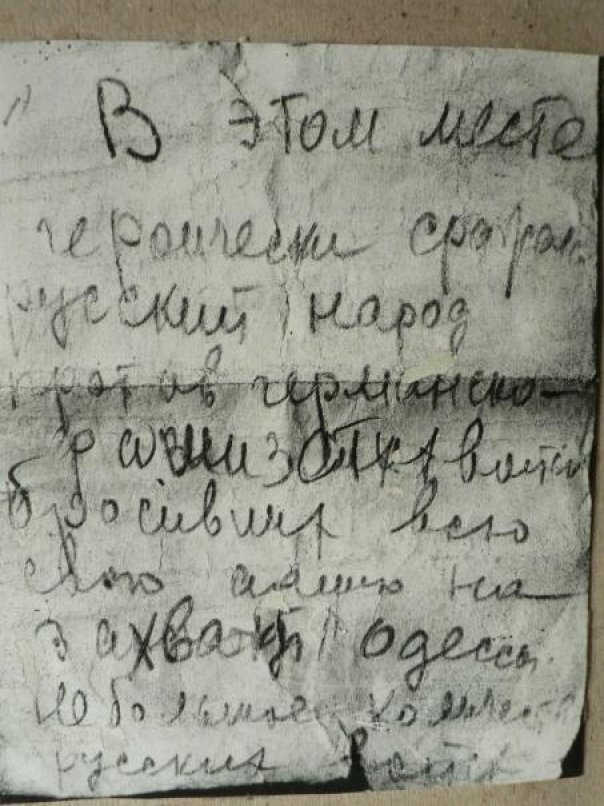 " В этом месте
героически сражал
русский народ
против германско-
фашистких войск
бросивших всю
свою армию на
захват Одессы.
Небольшое количеств
русских войск